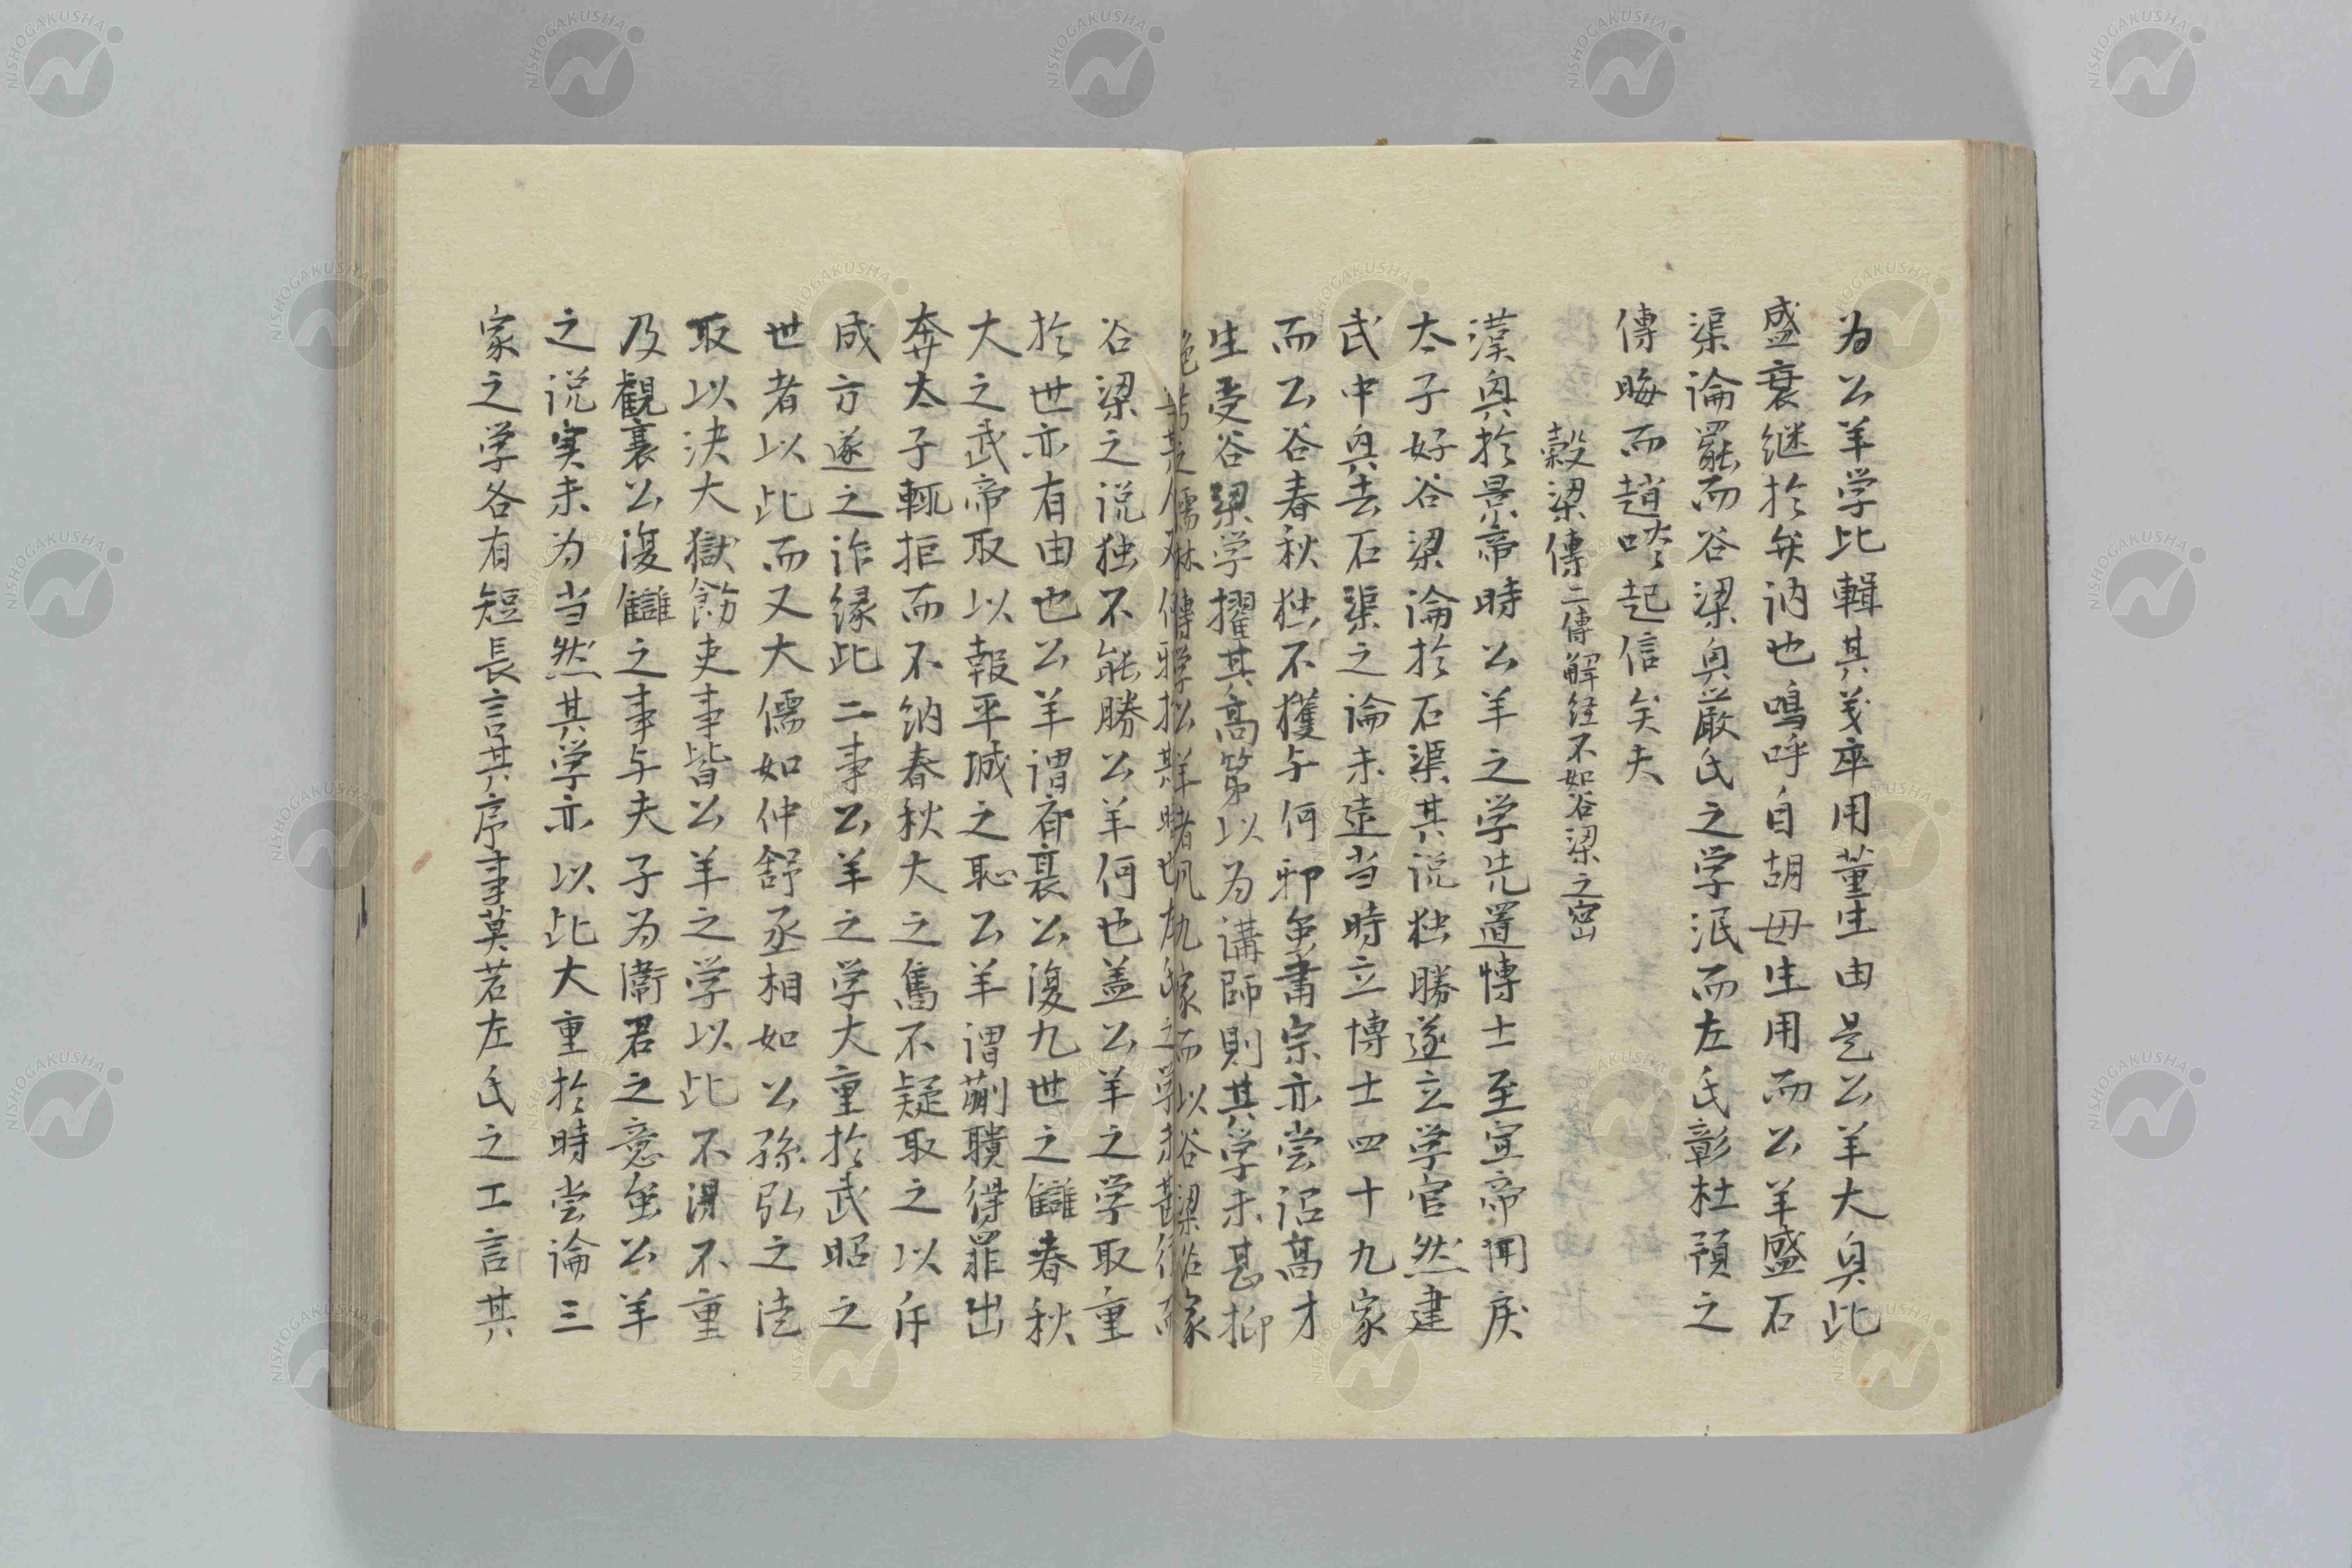 为公羊学比輯其义卒用董生由是公羊大奥此
盛衰继扵矣讷也鳴呼自胡毋生用而公羊盛石
渠論罷而谷梁奥嚴氏之学泯而左氏彰杜預之
傳晦而趙啖起信矣夫
穀梁傳二傳解経不如谷梁之密
漢奥扵景帝時公羊之学先置博士至宣帝闻戾
太子好谷梁論扵石渠其说独勝遂立学官然建
武中奥去石渠之論未遠当時立博士四十九家
而公谷春秋独不獲与何邪虽肅宗亦尝诏高才
生受谷梁学擢其高第以为講師則其学未甚抑
谷梁之说独不能勝公羊何也盖公羊之学取重
扵世亦有由也公羊谓齐襄公復九世之讎春秋
大之武帝取以報平城之恥公羊谓蒯聵得罪出
奔太子輒拒而不納春秋大之雋不疑取之以斥
成方遂之诈緣此二事公羊之学大重扵武昭之
世者以此而又大儒如仲舒丞相如公孫弘之徒
取以决大獄飭吏事皆公羊之学以比不得不重
及觀襄公復讎之事与夫子为衛君之意虽公羊
之说实未为当然其学亦以此大重扵時尝論三
家之学各有短長言其序事莫若左氏之工言其